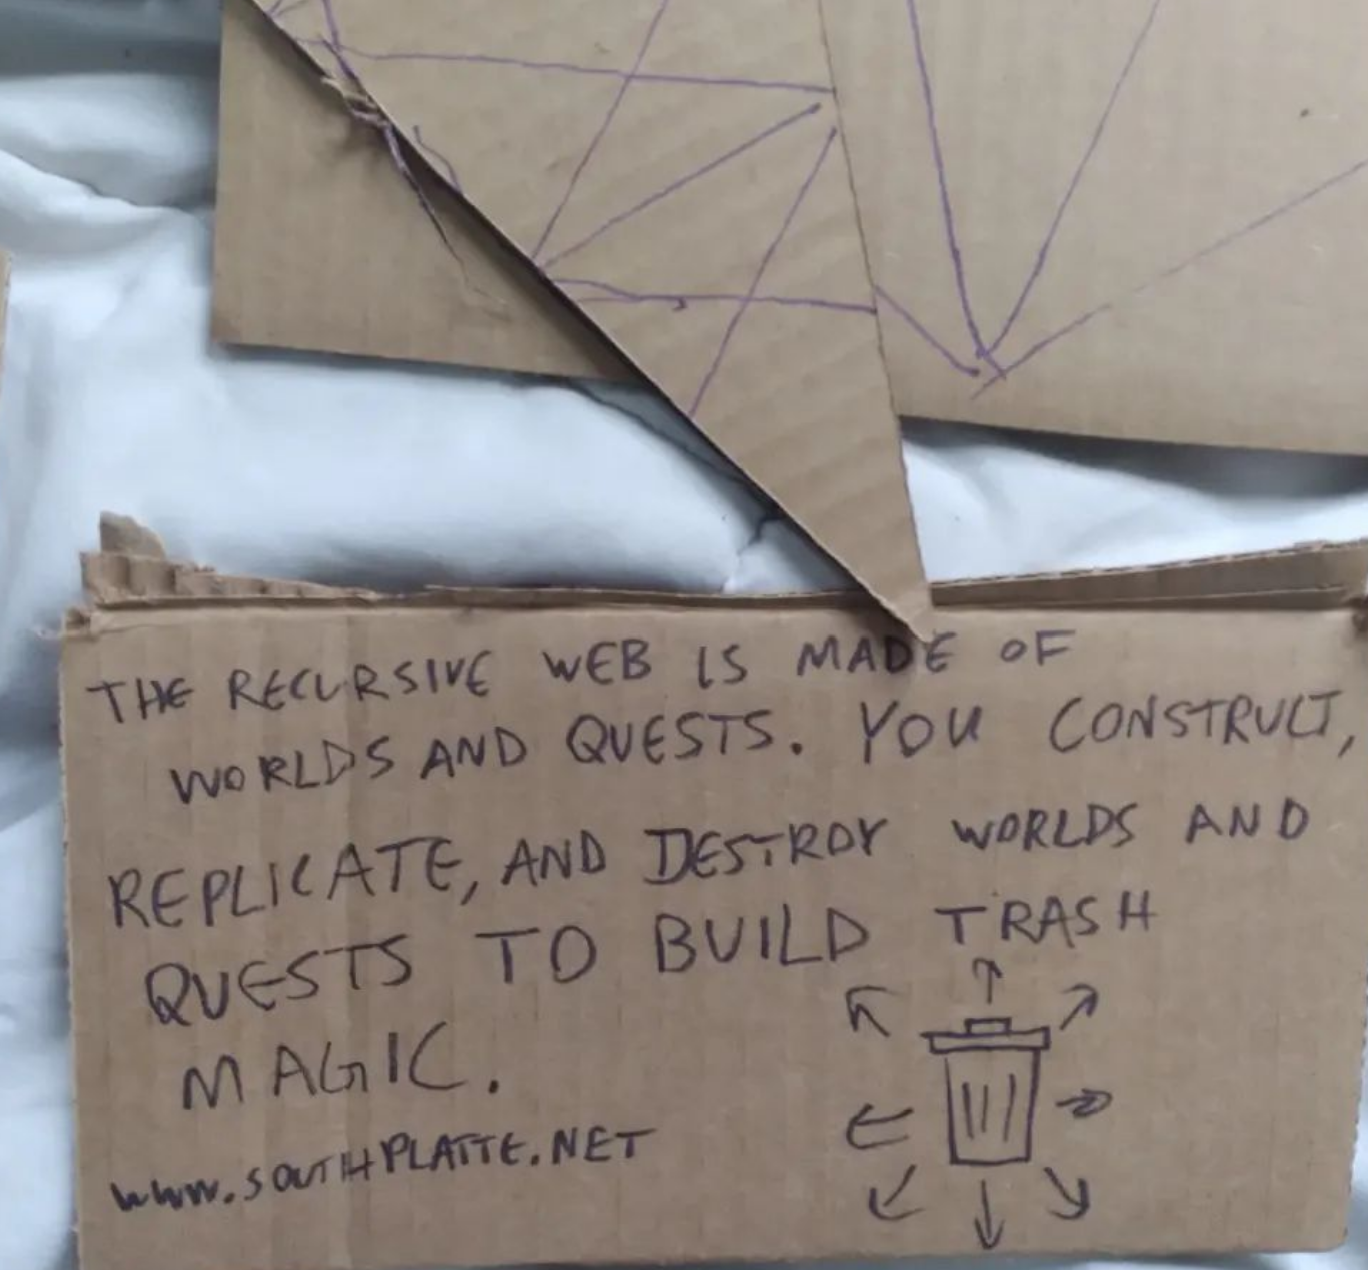 THE RECURSIVE WEB IS MADE OF
WORLDS AND QUESTS. YOU CONSTRUCT,
REPLICATE, AND DESTROY WORLDS AND
QUESTS TO BUILD TRASH
MAGIC.
www.SOUTHPLATTE.NET